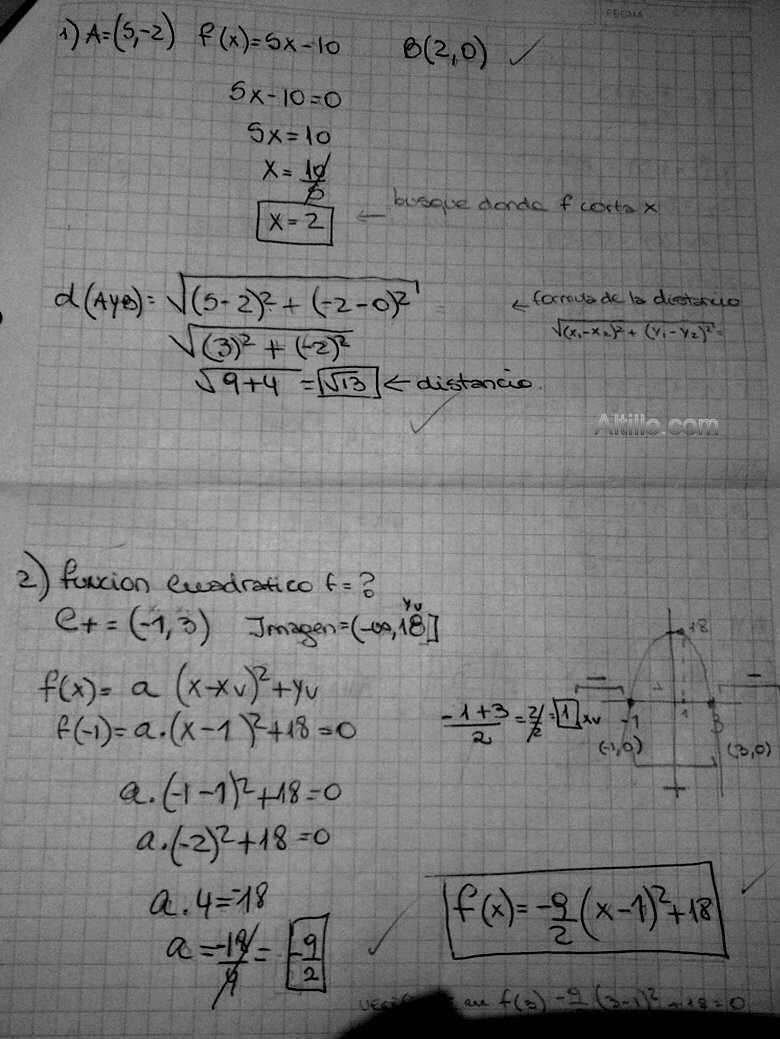 FECHA
1) A=(5,-2) f(x)=5x-10 B(2,0) ✓
5x-10=0
5x=10
x=10/5
x=2 ← busque donde f corta x
d(AyB)=√(5-2)²+(-2-0)² ← formula de la distancia
√(3)²+(-2)² √(x₁-x₂)²+(y₁-y₂)²=
√9+4 = √13 ← distancia.
Altillo.com
2) funcion cuadratica f=?
C+=(-1,3) Imagen=(-∞,18] yv
f(x)= a (x-xv)²+yv
f(-1)=a.(x-1)²+18=0
-1+3/2=2/2=1 xv
18
-1 1 3
(-1,0) (3,0)
- + -
a.(-1-1)²+18=0
a.(-2)²+18=0
a.4=-18
a=-18/4=-9/2
f(x)=-9/2(x-1)²+18
f(3) -9/2 (3-1)²+18=0